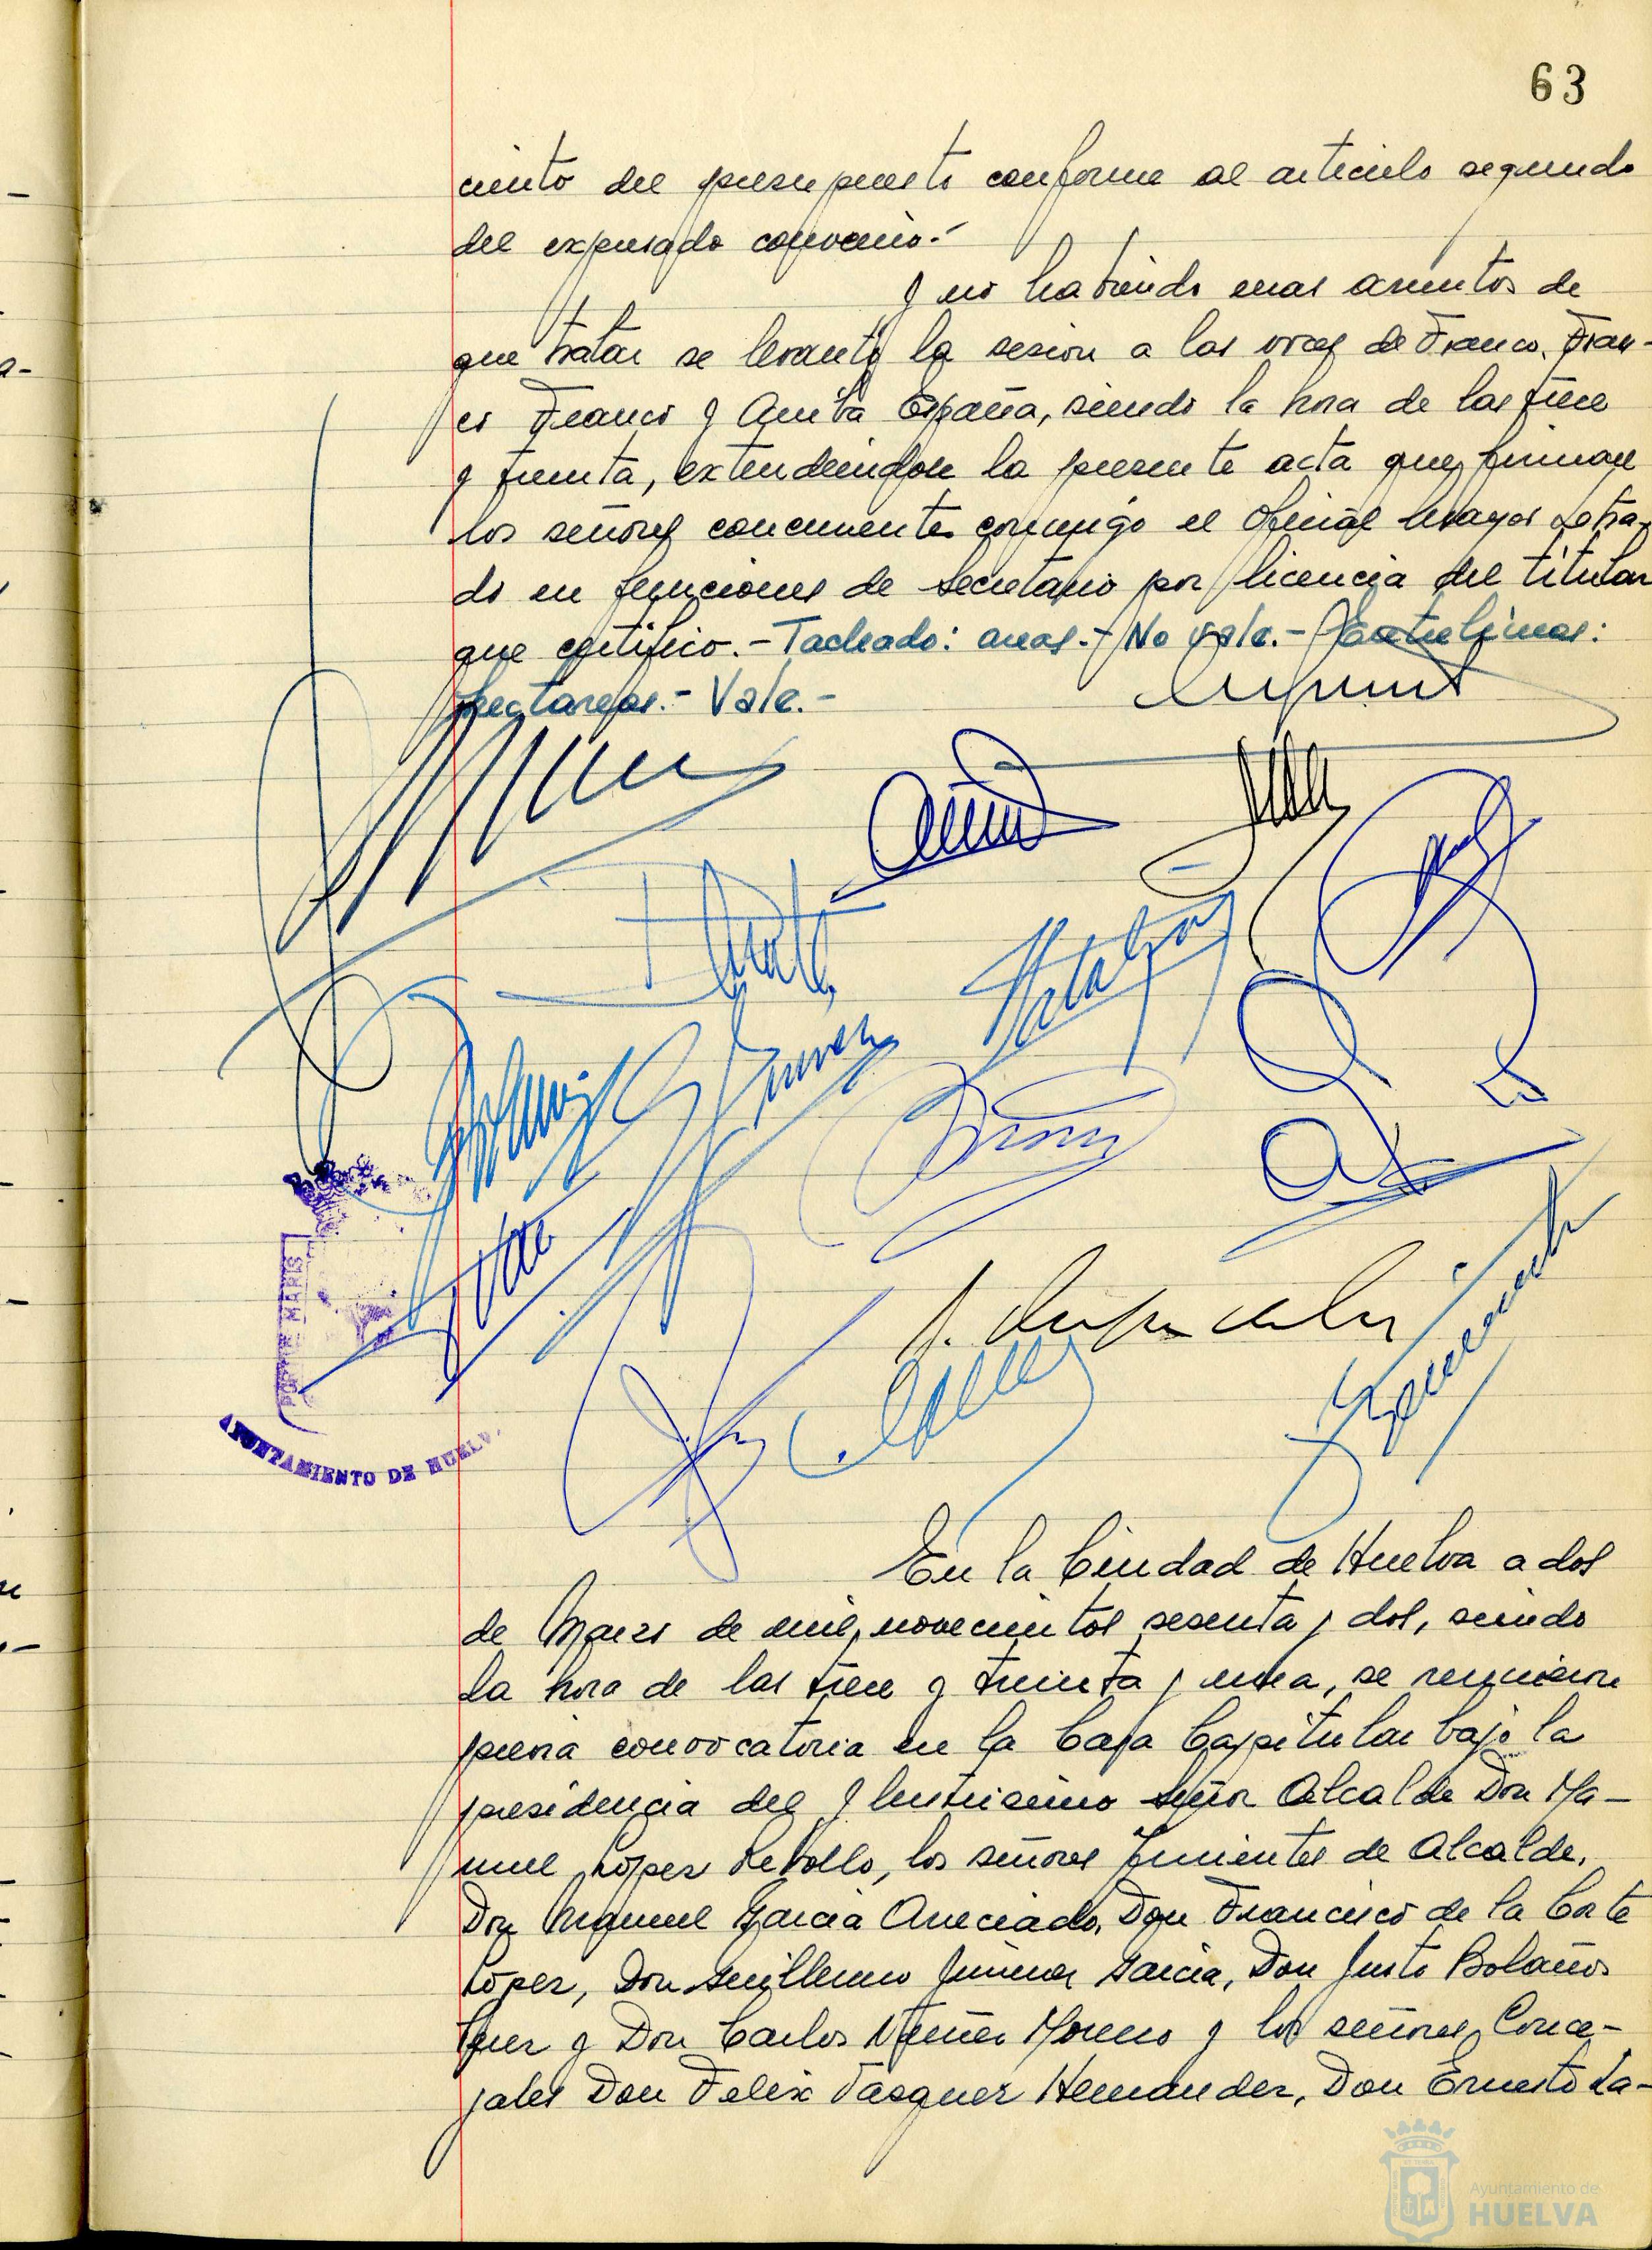 63
ciento del presupuesto conforme al articulo segundo
del expresado convenio.-
Y no habiendo mas asuntos de
que tratar se levantó la sesion a las voces de Franco, Fran-
co Franco y Arriba España, siendo la hora de las trece
y treinta, extendiendose la presente acta que firman
los señores concurrentes conmigo el Oficial Mayor Letra-
do en funciones de Secretario por licencia del titular
que certifico.- Tachado: areas.- No vale.- Entrelineas:
hectareas.- Vale.-
PORTUS MARIS
AYUNTAMIENTO DE HUELVA
En la Ciudad de Huelva a dos
de Marzo de mil novecientos sesenta y dos, siendo
la hora de las trece y treinta y una, se reunieron
previa convocatoria en la Casa Capitular bajo la
presidencia del Ilustrisimo Señor Alcalde Don Ma-
nuel López Rebollo, los señores Tenientes de Alcalde,
Don Manuel Garcia Aneciado, Don Francisco de la Corte
López, Don Guillermo Jimenez Garcia, Don Justo Bolaños
y Don Carlos Nuñez Moreno y los señores Conce-
jales Don Felix Vasquez Hernandez, Don Ernesto La-
Ayuntamiento de
HUELVA